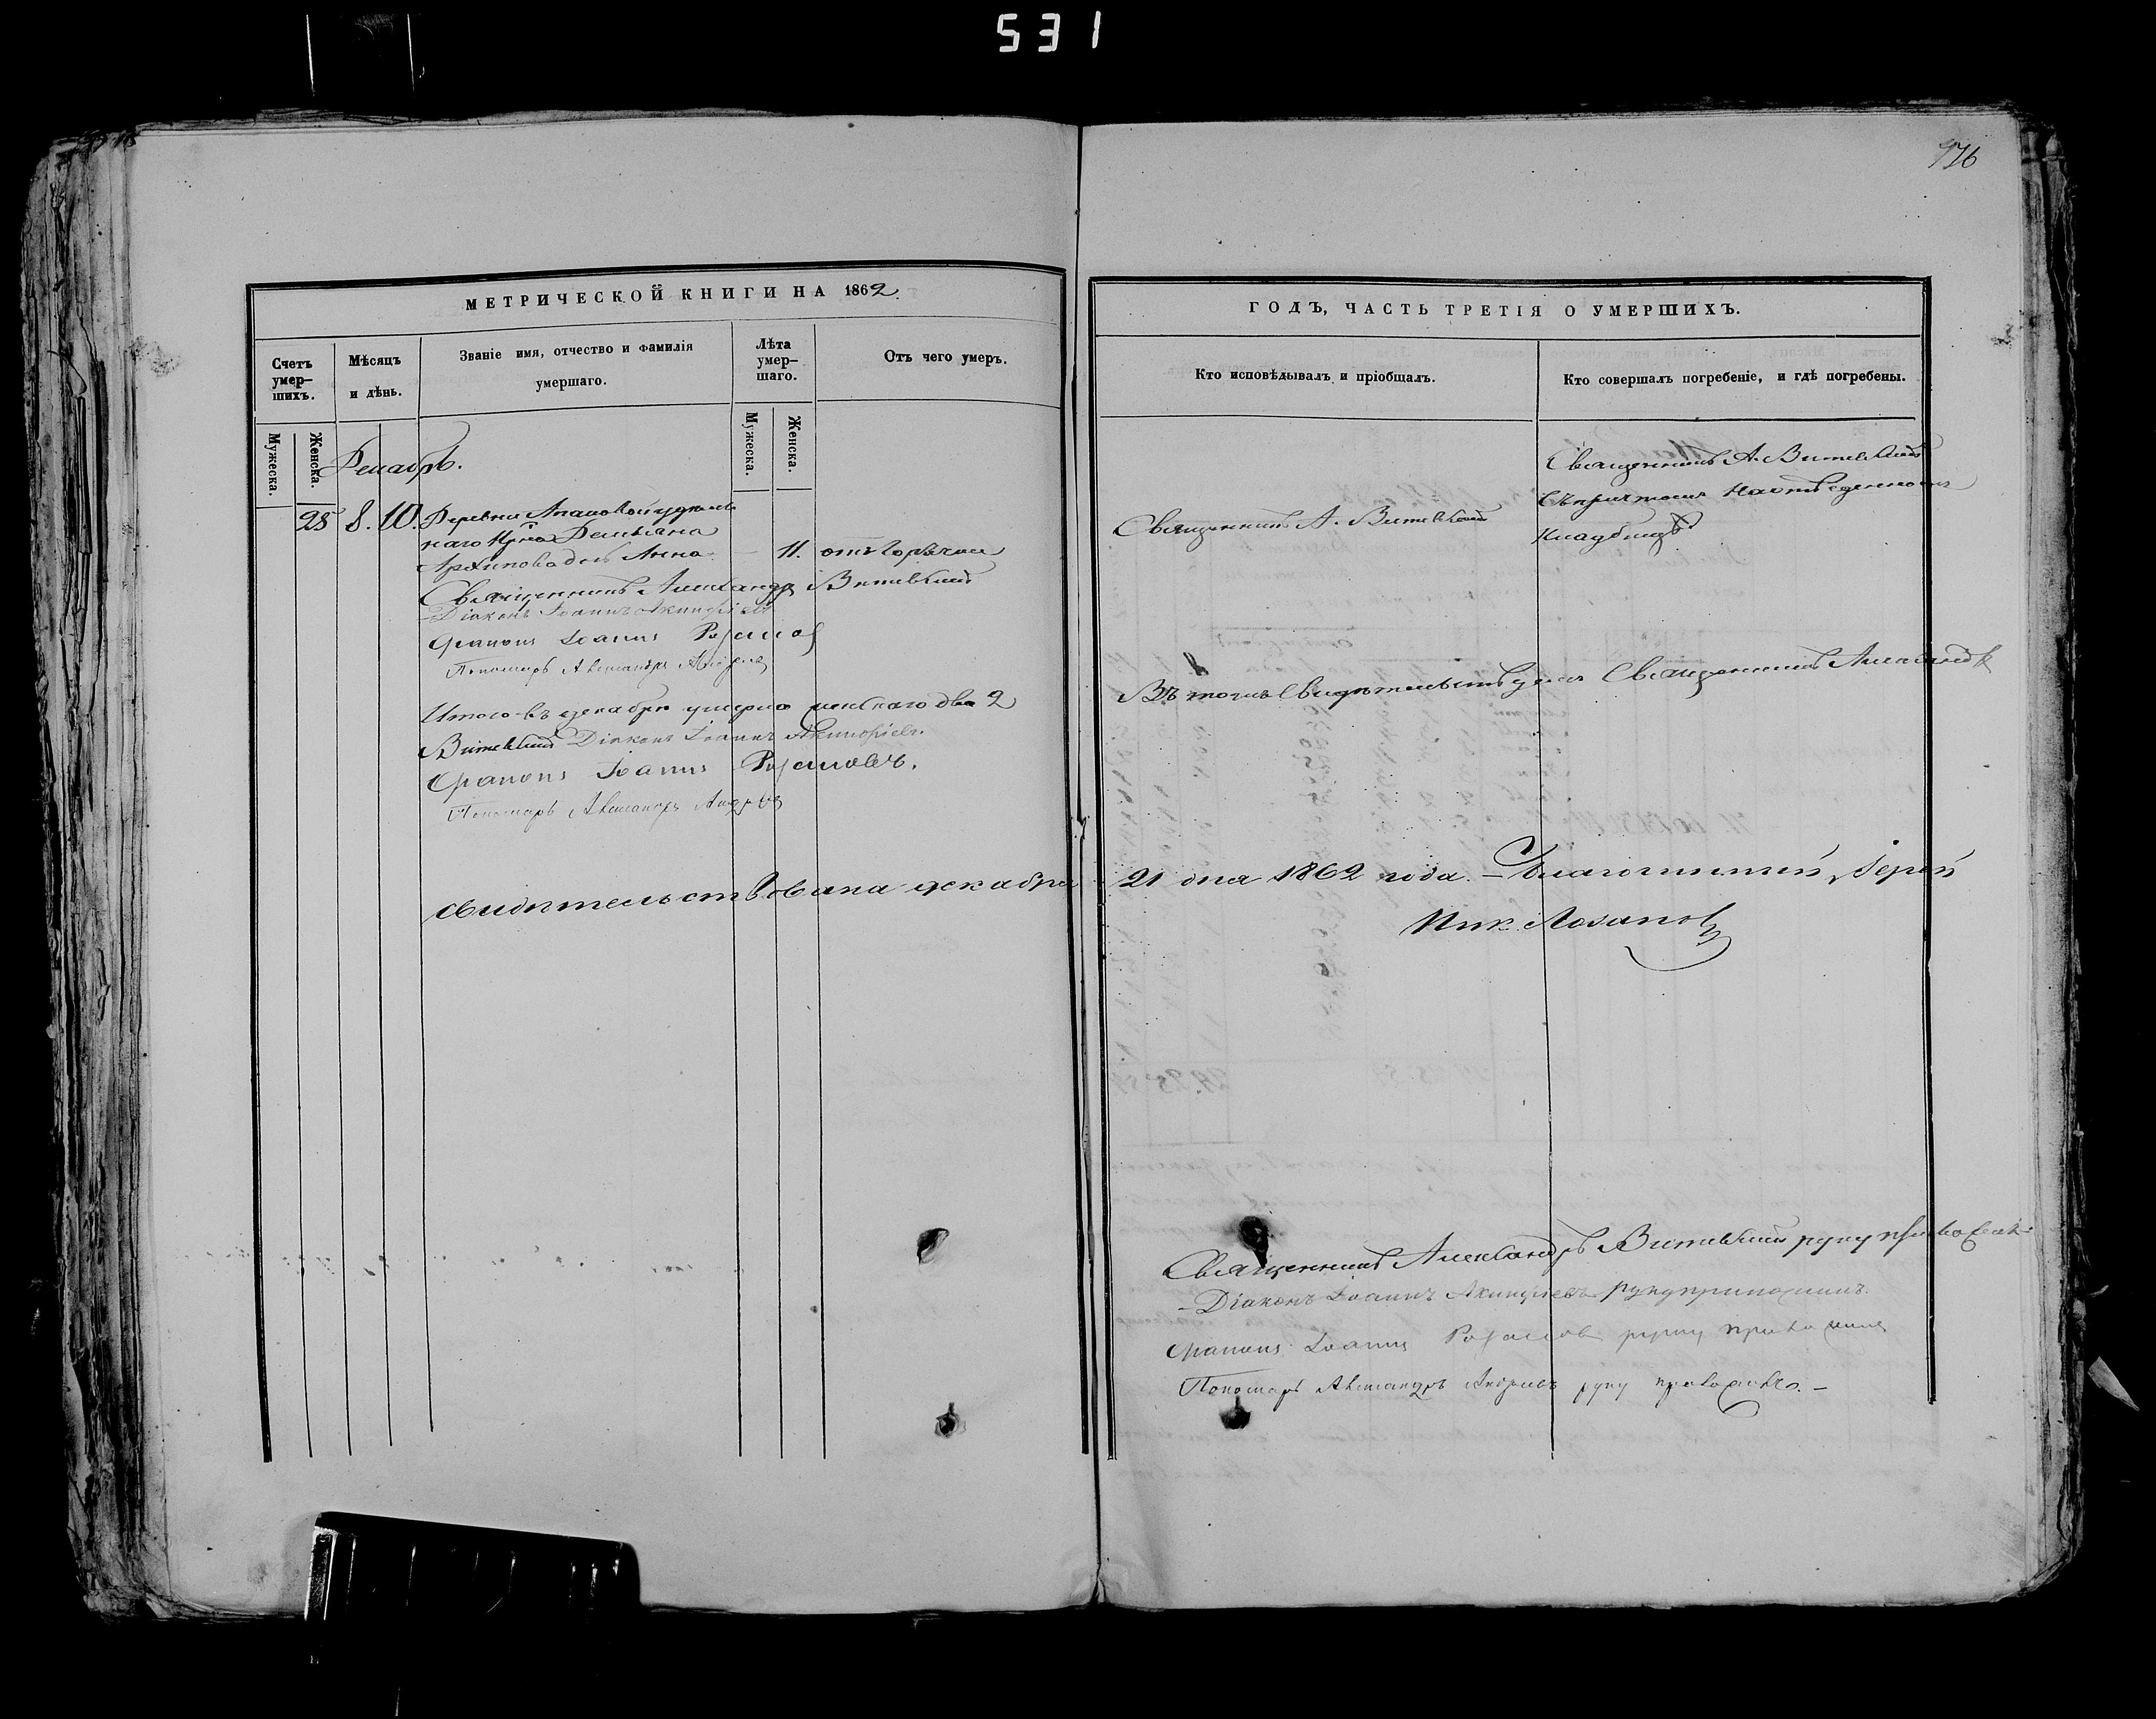 531
976
МЕТРИЧЕСКОЙ КНИГИ НА 1862.
Счетъ умер-шихъ.
Мѣсяцъ и дѣнь.
Званіе имя, отчество и фамилія умершаго.
Лѣта умер-шаго.
Отъ чего умеръ.
Мужеска.
Женска.
Мужеска.
Женска.
Декабрь.
25 8. 10. Деревни удѣль
наго Демьяна
Архипова дочь Анна - 11. отъ горячки
Священникъ Александръ Витевский
Діаконъ Іоаннъ Акинфіевъ
Іоаннъ
Пономарь Александръ Андреевъ
Итого въ декабрѣ умерло женскаго два 2
Витевский Діаконъ Іоаннъ Акинфіевъ.
Іоаннъ
Пономарь Александръ Андреевъ
свидѣтельствована декабря
ГОДЪ, ЧАСТЬ ТРЕТІЯ О УМЕРШИХЪ.
Кто исповѣдывалъ и пріобщалъ.
Кто совершалъ погребеніе, и гдѣ погребены.
Священникъ А. Витевский
Священникъ А. Витевский
съ причтомъ на отведенномъ
кладбищѣ
Въ томъ свидѣтельствуемъ Священникъ Александръ
21 дня 1862 года. – Благочинный, Іерей
Ник. Лозановъ
Священникъ Александръ Витевский руку приложилъ
- Діаконъ Іоаннъ Акинфіевъ руку приложилъ.
Іоаннъ руку приложилъ
Пономарь Александръ Андреевъ руку приложилъ. –